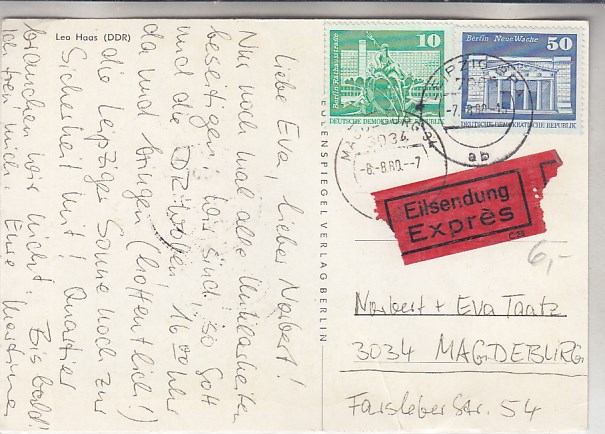 Leo Haas (DDR)
Liebe Eva, lieber Norbert!
Nur nochmal alle Unklarheiten
beseitigen. Wir sind, so Gott
und die DR wollen 16 00 Uhr
da und bringen (hoffentlich!)
die Leipziger Sonne noch zur
Sicherheit mit! Quartier
brauchen wir nicht. Bis bald!
Eure Martina
EULENSPIEGEL VERLAG BERLIN
10
Berlin
DEUTSCHE DEMOKRATISCHE REPUBLIK
Berlin Neue Wache
50
DEUTSCHE DEMOKRATISCHE REPUBLIK
LEIPZIG
ab
MAGDEBURG 34
3034
-8.-8.80.--7
Eilsendung
Exprès
6,-
Norbert + Eva Taatz
3034 MAGDEBURG
Farsleber Str. 54